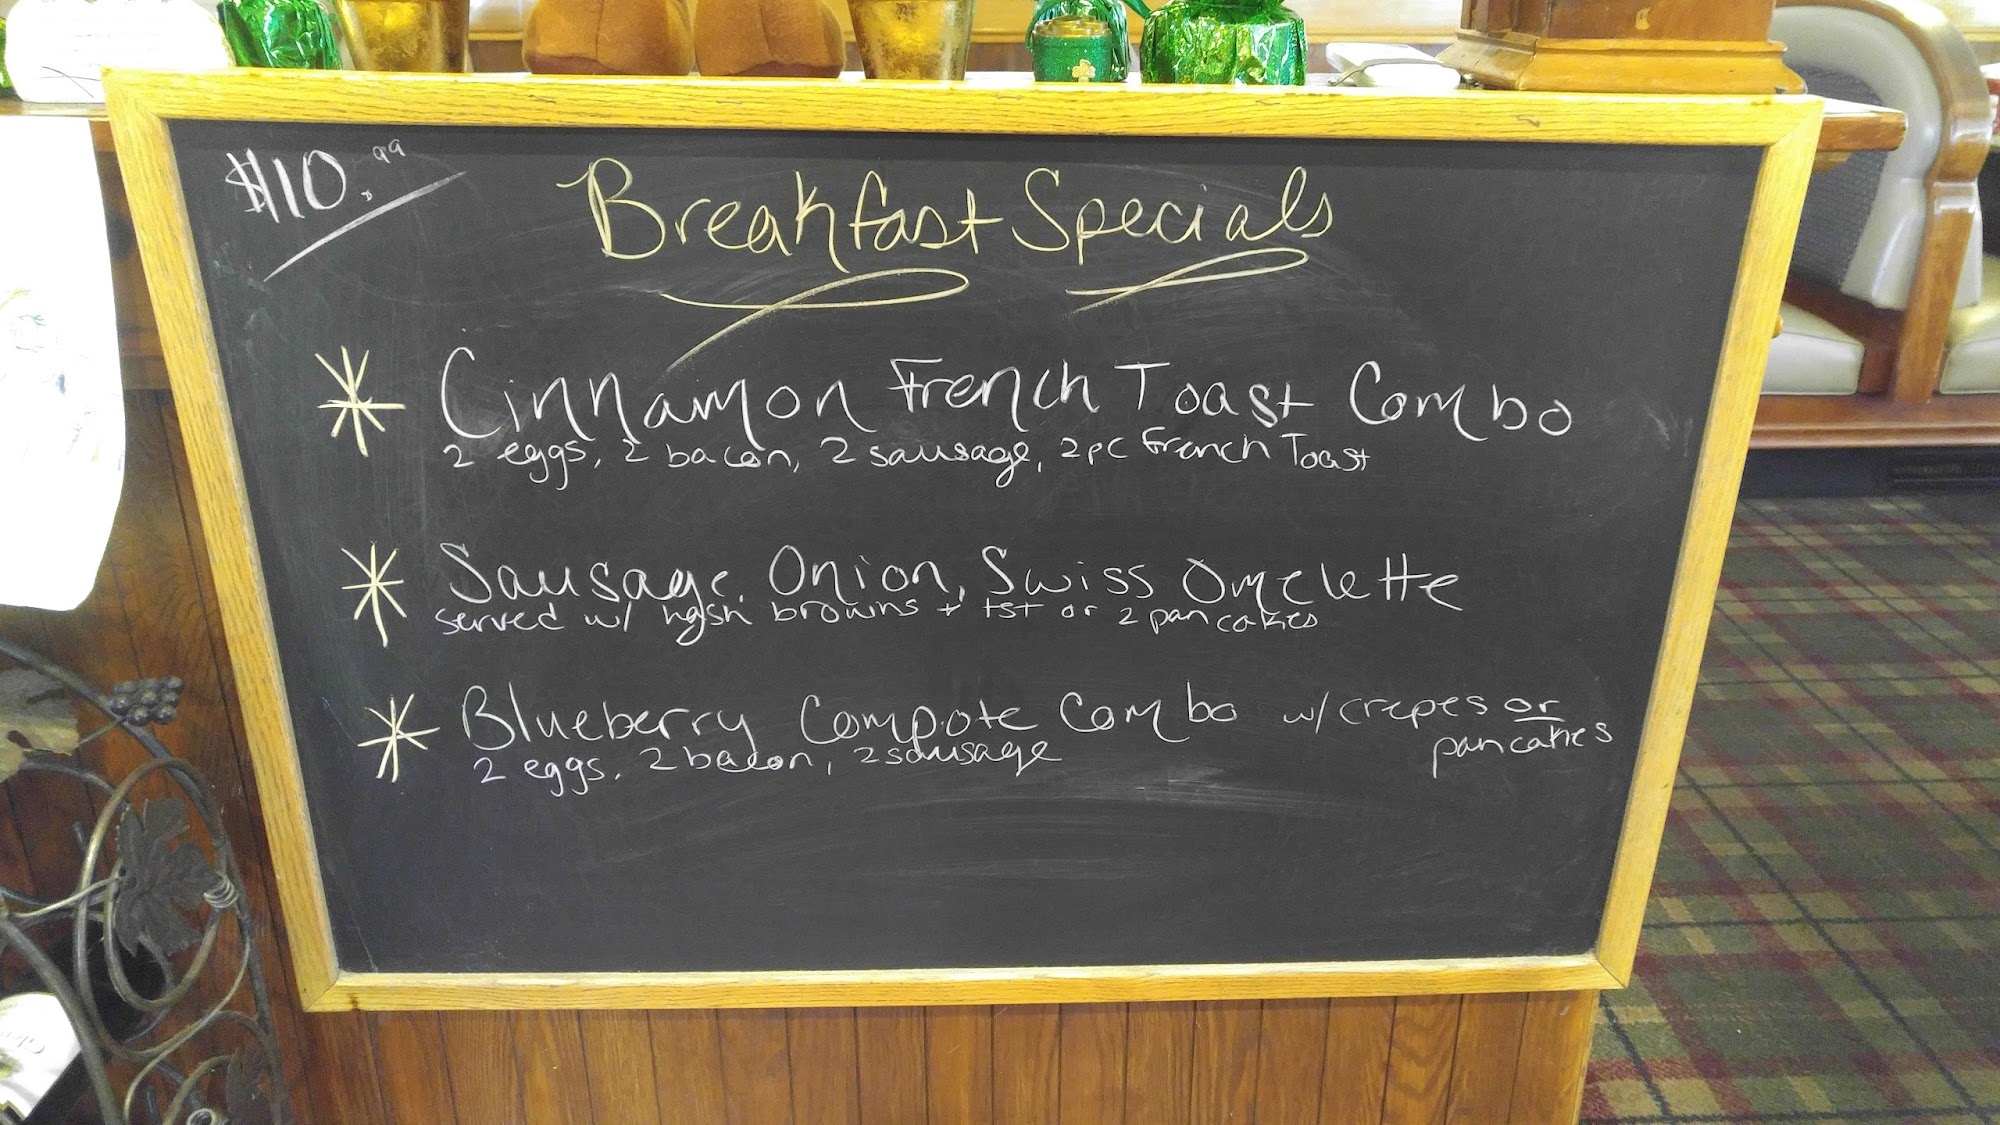 $10.99
Breakfast Specials
Cinnamon French Toast Combo
2 eggs, 2 bacon, 2 sausage, 2pc French Toast
Sausage, Onion, Swiss Omelette
served w/ hash browns + tst or 2 pancakes
Blueberry Compote Combo w/ crepes or
pancakes
2 eggs, 2 bacon, 2 sausage